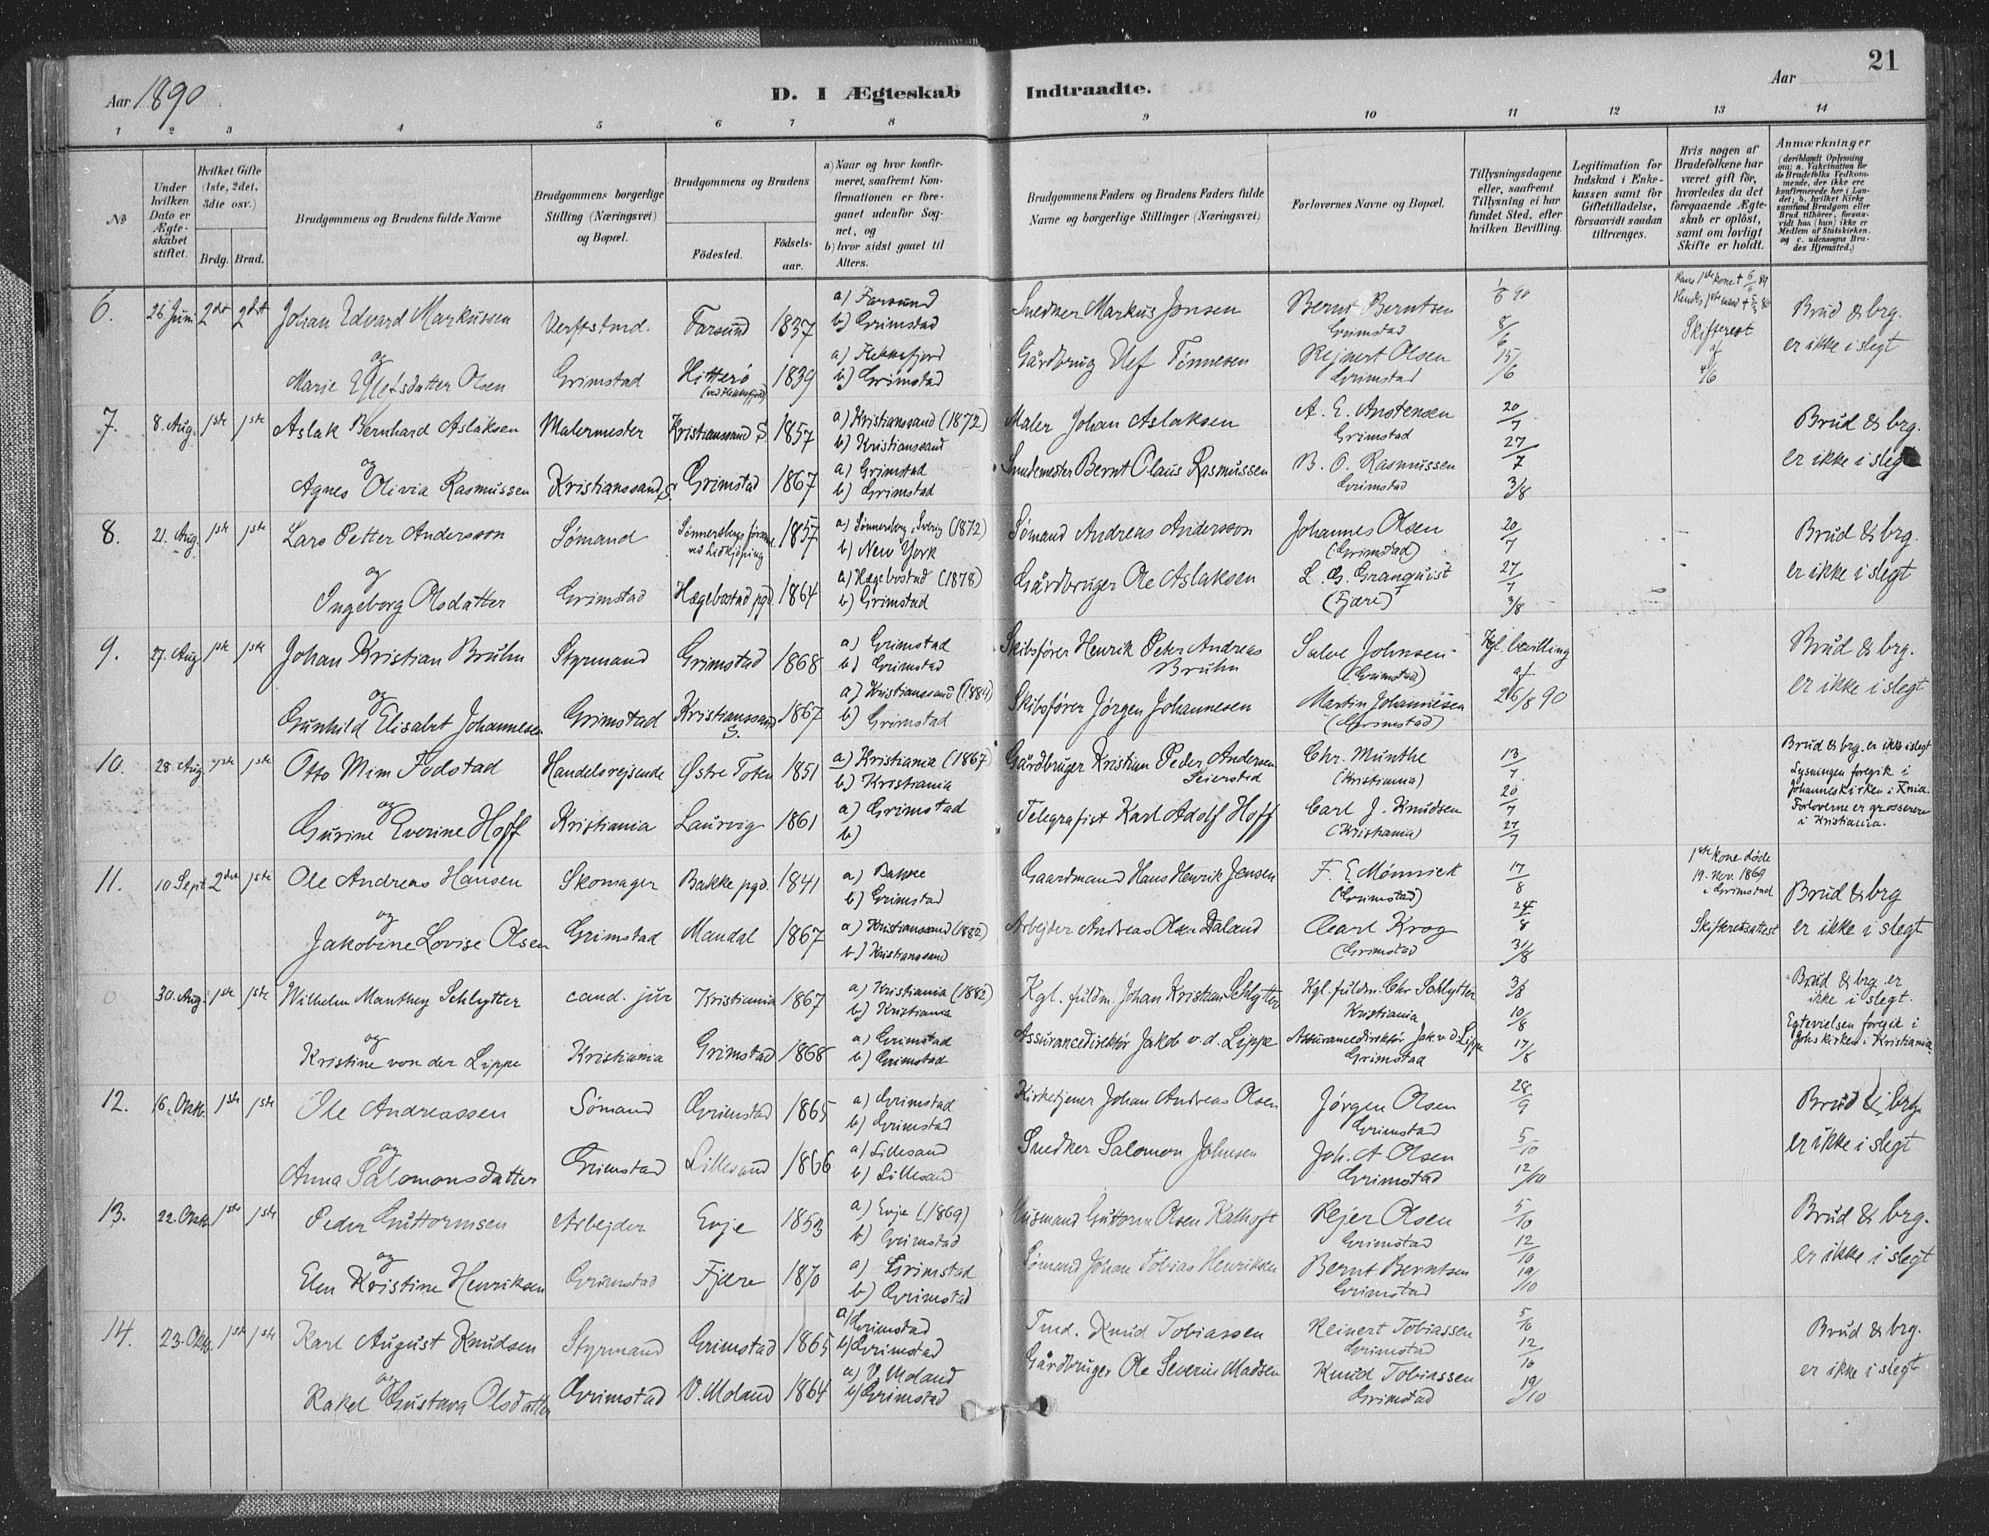 Aar 1890
D. I Ægteskab
Indtraadte.
Aar
21
1 2 3 4 5 6 7 8 9 10 11 12 13 14
No
Under hvilken Dato er Ægteskabet stiftet.
Hvilket Gifte (1ste, 2det, 3dte osv.)
Brdg. Brud.
Brudgommens og Brudens fulde Navne
Brudgommens borgerlige Stilling (Næringsvei) og Bopæl.
Brudgommens og Brudens
Fødested.
Fødselsaar.
a) Naar og hvor konfirmeret, saafremt Konfirmationen er foregaaet udenfor Sognet, og
b) hvor sidst gaaet til Alters.
Brudgommens Faders og Brudens Faders fulde Navne og borgerlige Stillinger (Næringsvei)
Forlovernes Navne og Bopæl.
Tillysningsdagene eller, saafremt Tillysning ei har fundet Sted, efter hvilken Bevilling.
Legitimation for Indskud i Enkekassen samt for Giftetilladelse, forsaavidt saadan tiltrænges.
Hvis nogen af Brudefolkene har været gift før, hvorledes da det foregaaende Ægteskab er opløst, samt om lovligt Skifte er holdt.
Anmærkninger (deriblandt Oplysning om: a. Vakcination for de Brudefolks Vedkommende, der ikke ere konfirmerede her i Landet; b. hvilket Kirkesamfund Brudgom eller Brud tilhører, forsaavidt han (hun) ikke er Medlem af Statskirken, og c. udensogns Brudes Hjemsted.)
6. 26 Juni 2det 2det Johan Edvard Markussen Verftstmd. Farsund 1837 a) Farsund b) Grimstad Snedker Markus Jonsen Bernt Berntsen Grimstad 1/6 90 8/6 Hans 1ste kone + 6/6 89 Hendes 1ste mand + Brud & brg.
og Marie Olsen Grimstad Hitterø (ved Flekkefjord) 1839 a) Flekkefjord b) Grimstad Gårdbrug Ulf Tønnesen Rejnert Olsen Grimstad 15/6 Skifteret af 4/6 er ikke i slegt
7. 8. Aug. 1ste 1ste Aslak Bernhard Aslaksen Malermester Kristianssand S. 1857 a) Kristianssand (1872) b) Kristianssand Maler Johan Aslaksen A. E. Anstensen Grimstad 20/7 27/7 Brud & brg.
og Agnes Olivia Rasmussen Kristianssand S. Grimstad 1867 a) Grimstad b) Grimstad Smedemester Bernt Claus Rasmussen B. O. Rasmussen Grimstad 3/8 er ikke i slegt
8. 21. Aug. 1ste 1ste Lars Petter Andersson Sømand ved Lidkjøping 1857 a) Sønnersberg, Sverig (1872) b) New York Sømand Andreas Andersson Johannes Olsen (Grimstad) 20/7 Brud & brg.
og Ingeborg Olsdatter Grimstad Hægebostad pgd 1864 a) Hægebostad (1878) b) Grimstad Gårdbruger Ole Aslaksen L. G. Granquist (Fjære) 27/7 3/8 er ikke i slegt
9. 27. Aug 1ste 1ste Johan Kristian Bruhn Styrmand Grimstad 1868 a) Grimstad b) Grimstad Skibsfører Henrik Peter Andreas Bruhn Salve Johnsen (Grimstad) Kgl. bevilling af Brud & brg.
og Gunhild Elisabet Johannesen Grimstad Kristianssand S. 1867 a) Kristianssand (1884) b) Grimstad Skibsfører Jørgen Johannesen Martin Johannesen (Grimstad) 26/8 90 er ikke i slegt
10. 28. Aug 1ste 1ste Otto Mim Fodstad Handelsrejsende Østre Toten 1851 a) Kristiania (1867) b) Kristiania Gårdbruger Kristian Peder Andersen Seierstad Chr. Munthe (Kristiania) 13/7 20/7 Brud & brg. er ikke i slegt Lysningen foregik i
og Gurine Everine Hoff Kristiania Laurvig 1861 a) Grimstad b) Telegrafist Karl Adolf Hoff Carl J. Knudsen (Kristiania) 27/7 Johanneskirken i Krnia. Forloverne er grosserere i Kristiania.
11. 10 Sept 2det 1ste Ole Andreas Hansen Skomager Bakke pgd. 1841 a) Bakke b) Grimstad Gaardmand Hans Henrik Jensen F. E. Mønnick (Grimstad) 17/8 1ste kone døde 19. Nov. 1869 i Grimstad Brud & brg
og Jakobine Lovise Olsen Grimstad Mandal 1867 a) Kristianssand (1882) b) Kristianssand Arbejder Andreas Olsen Daland Carl Krog (Grimstad 24/8 31/8 Skifteretsattest er ikke i slegt
0 30. Aug. 1ste 1ste Wilhelm Manthey Schlytter cand. jur Kristiania 1867 a) Kristiania (1882) b) Kristiania Kgl. fuldm. Johan Kristian Schlytter Kgl. fuldm. Chr Schlytter Kristiania 3/8 10/8 Brud & brg er ikke i slegt.
og Kristine von der Lippe Kristiania Grimstad 1868 a) Grimstad b) Grimstad Assurancedirektør Jakob v. d. Lippe Assurancedirektør Jak v. d. Lippe Grimstad 17/8 Egtevielsen foregik i Johs kirken i Kristiania.
12. 16. Okt. 1ste 1ste Ole Andreassen Sømand Grimstad 1865 a) Grimstad b) Grimstad Kirketjener Johan Andreas Olsen Jørgen Olsen Grimstad 28/9 Brud & brg.
og Anna Salomonsdatter Grimstad Lillesand 1866 a) Lillesand b) Lillesand Snedker Salomon Johnsen Joh. A Olsen Grimstad 5/10 12/10 er ikke i slegt
13. 22. Okt. 1ste 1ste Peder Guttormsen Arbejder Evje 1853 a) Evje (1869) b) Grimstad Husmand Guttorm Olsen Kathoft Rejer Olsen Grimstad 5/10 12/10 Brud & brg.
og Elen Kristine Henriksen Grimstad Fjære 1870 a) Grimstad b) Grimstad Sømand Johan Tobias Henriksen Bernt Berntsen Grimstad 19/10 er ikke i slegt
14. 23. Okt. 1ste 1ste Karl August Knudsen Styrmand Grimstad 1865 a) Grimstad b) Grimstad Tmd. Knud Tobiassen Reinert Tobiassen Grimstad 5/10 12/10 Brud & brg.
og Rakel Gustava Olsdatter Grimstad V. Moland 1864 a) V. Moland b) Grimstad Gårdbruger Ole Severin Madsen Knud Tobiassen Grimstad 19/10 er ikke i slegt